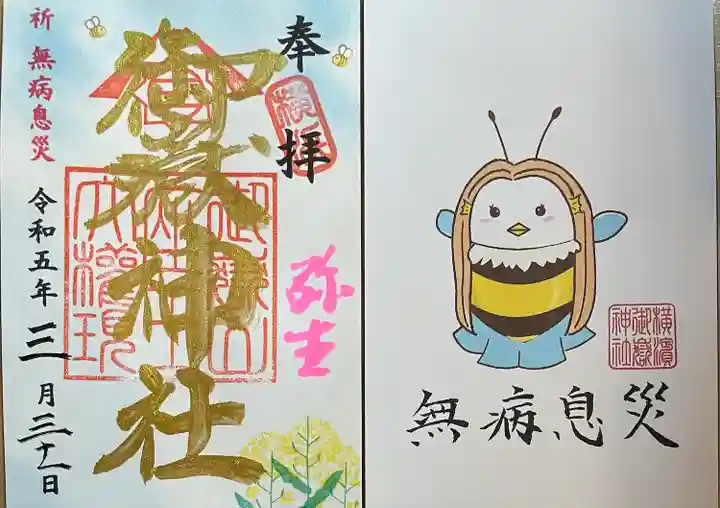 奉拝
横浜
御嶽神社
弥生
祈 無病息災
令和五年三月三十一日
無病息災
横濱
御嶽
神社